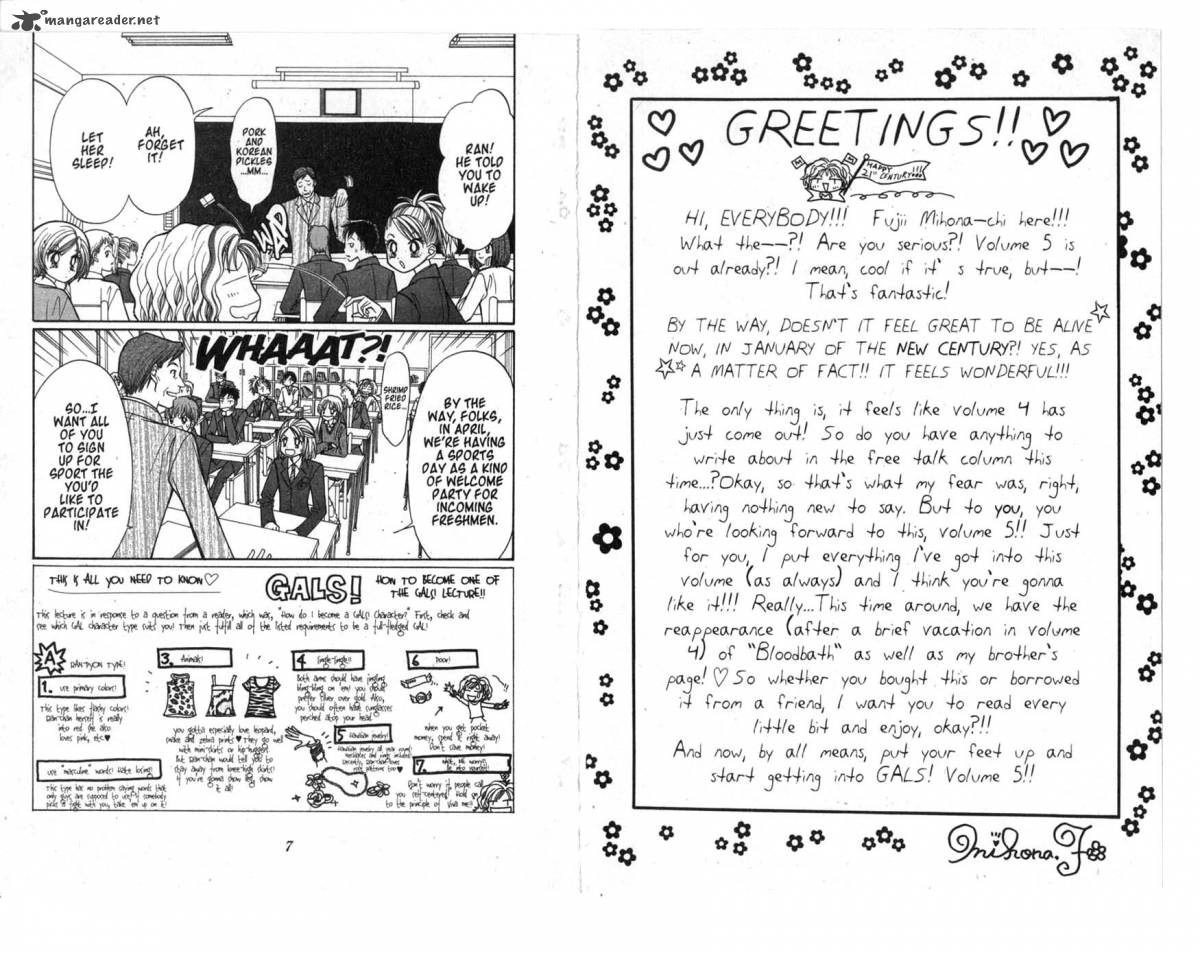 mangareader.net
RAN!
HE TOLD
YOU TO
WAKE
UP!
PORK
AND
KOREAN
PICKLES
...MM...
WAP
AH,
FORGET
IT!
LET
HER
SLEEP!
WHAAAT?!
BY THE
WAY, FOLKS,
IN APRIL,
WE'RE HAVING
A SPORTS
DAY AS A KIND
OF WELCOME
PARTY FOR
INCOMING
FRESHMEN.
SHRIMP
FRIED
RICE...
SO...I
WANT ALL
OF YOU
TO SIGN
UP FOR
SPORT THE
YOU'D
LIKE TO
PARTICIPATE
IN!
THIS IS ALL YOU NEED TO KNOW♡
GALS!
HOW TO BECOME ONE OF
THE GALS! LECTURE!!
This lecture is in response to a question from a reader, which was, "How do I become a GALS! Character?" First, check and
see which GAL character type suits you! Then just fulfill all of the listed requirements to be a full-fledged GAL!
A
RAN-PYON TYPE!
1. use primary colors!
This type likes flashy colors!
Ran-chan herself is really
into red. She also
loves pink, etc.♥
use "masculine" words! Hate losing!
This type has no problem saying words that
only guys are supposed to use! If somebody
picks a fight with you, take 'em up on it!
3. Animals!
you gotta especially love leopard,
snake and zebra prints♥ They go well
with mini-skirts or hip-huggers!
But Ran-chan would tell you to
stay away from knee-high skirts!
If you're gonna show leg, show
it all!
4 Jingle-Jingle!!
Both arms should have jingling
bling-bling on 'em! you should
prefer silver over gold. Also,
you should often have sunglasses
perched atop your head.
5 Hawaiian jewelry!
Hawaiian jewelry all year round!
Necklaces and rings included!
6 Poor!
when you get pocket
money, spend it right away!
Don't save money!
7.
Don't worry if people call
you self-centered. Hold on
to the principle of "Viva me!!"
7
GREETINGS!!
HAPPY
21st CENTURY!!!
HI, EVERYBODY!!! Fujii Mihona-chi here!!!
What the--?! Are you serious?! Volume 5 is
out already?! I mean, cool if it's true, but--!
That's fantastic!
BY THE WAY, DOESN'T IT FEEL GREAT TO BE ALIVE
NOW, IN JANUARY OF THE NEW CENTURY?! YES, AS
A MATTER OF FACT!! IT FEELS WONDERFUL!!!
The only thing is, it feels like volume 4 has
just come out! So do you have anything to
write about in the free talk column this
time...?Okay, so that's what my fear was, right,
having nothing new to say. But to you, you
who're looking forward to this, volume 5!! Just
for you, I put everything I've got into this
volume (as always) and I think you're gonna
like it!!! Really...This time around, we have the
reappearance (after a brief vacation in volume
4) of "Bloodbath" as well as my brother's
page! ♡ So whether you bought this or borrowed
it from a friend, I want you to read every
little bit and enjoy, okay?!!
And now, by all means, put your feet up and
start getting into GALS! Volume 5!!
Mihona.F